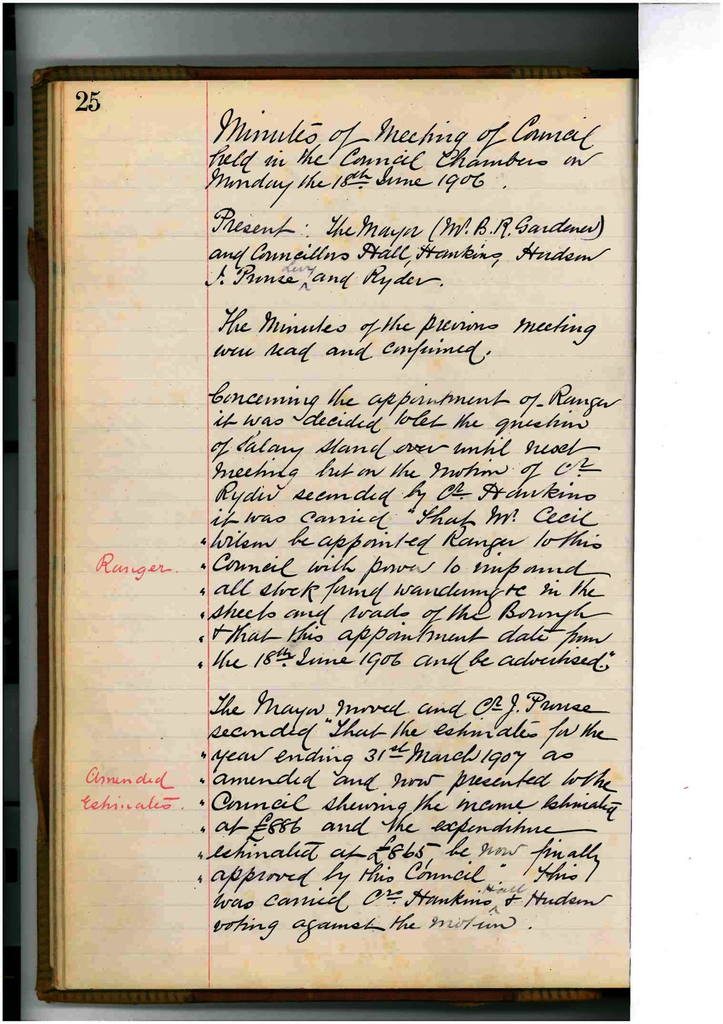 25
Minutes of Meeting of Council
held in the Council Chambers on
Monday the 18th June 1906.
Present: The Mayor (Mr. B. R. Gardener)
and Councillors Hall, Hankins, Hudson
J. Prouse Levy and Ryder.
The Minutes of the previous meeting
were read and confirmed.
Concerning the appointment of Ranger
it was decided to let the question
of Salary stand over until next
meeting but on the motion of Cr
Ryder seconded by Cr Hankins
it was carried "That Mr. Cecil
" Wilson be appointed Ranger to this
Ranger. " Council with power to impound
" all stock found wandering &c in the
" streets and roads of the Borough
" & that this appointment date from
" the 18th June 1906 and be advertised."
The Mayor moved and Cr J. Prouse
seconded "That the estimates for the
" year ending 31st March 1907 as
Amended " amended and now presented to the
Estimates. " Council shewing the income estimated
" at £886 and the expenditure
" estimated at £865, be now finally
" approved by this Council". This
was carried Crs. Hankins, Hall & Hudson
voting against the motion.